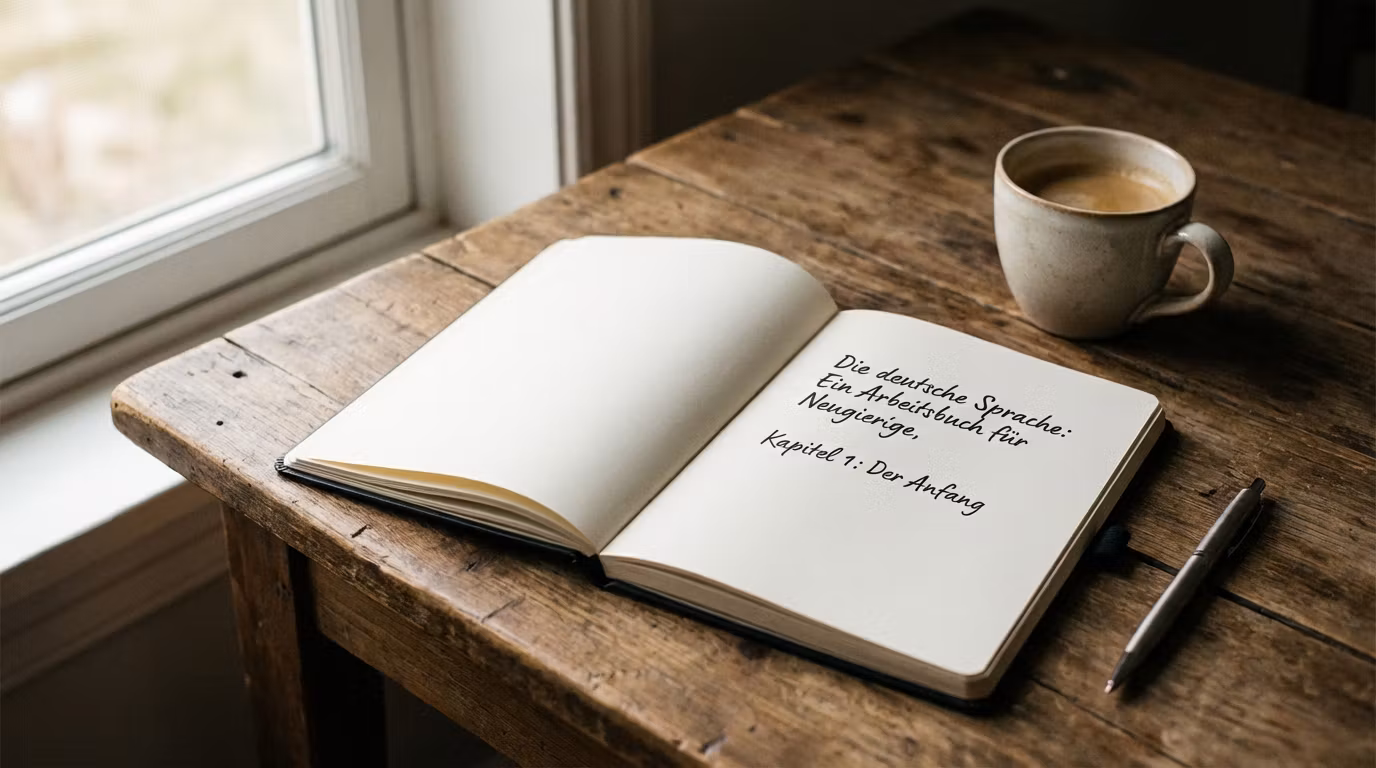 Die deutsche Sprache:
Ein Arbeitsbuch für
Neugierige,
Kapitel 1: Der Anfang